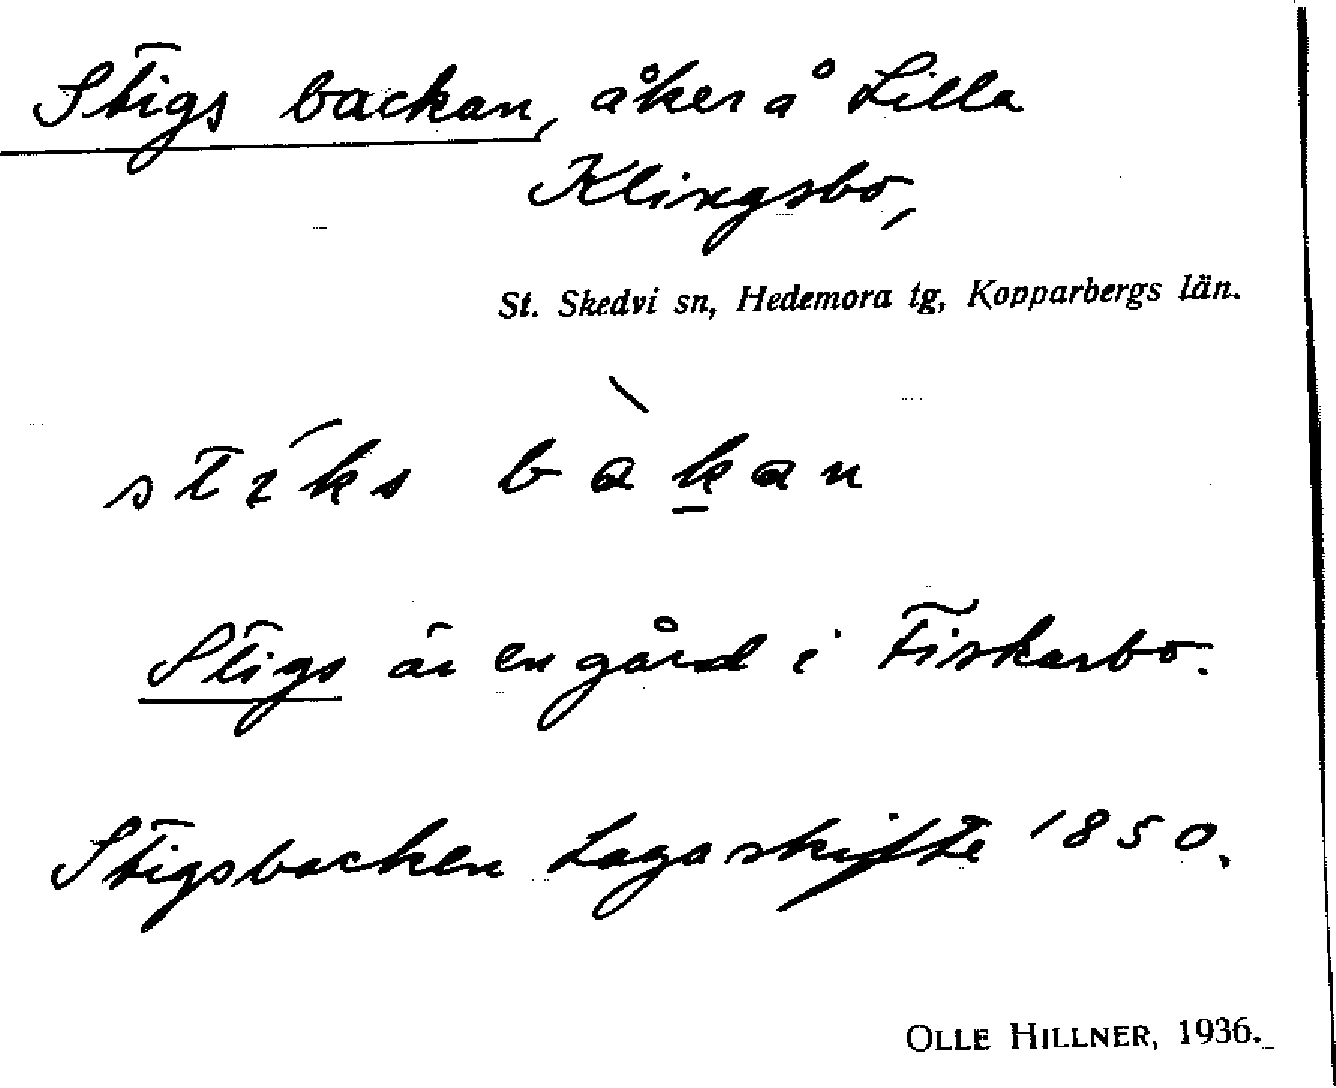 Stigs backan, åker å Lilla
Klingsbo,
St. Skedvi sn, Hedemora tg, Kopparbergs län.
stíks bàkan
Stigs är en gård i Fiskarbo.
Stigsbacken Laga skifte 1850.
OLLE HILLNER, 1936.